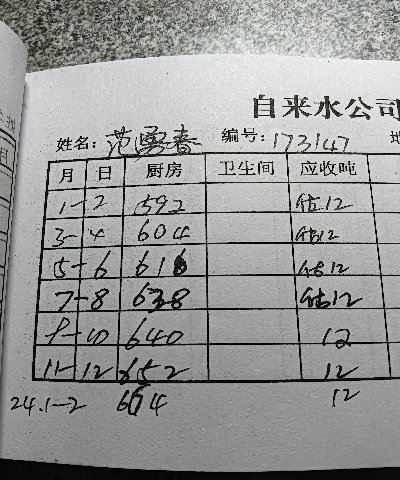 自来水公司
姓名: 范勇春 编号: 173147
月 日 厨房 卫生间 应收吨
1-2 592 估12
3-4 604 估12
5-6 616 估12
7-8 638 估12
9-10 640 12
11-12 652 12
24.1-2 664 12